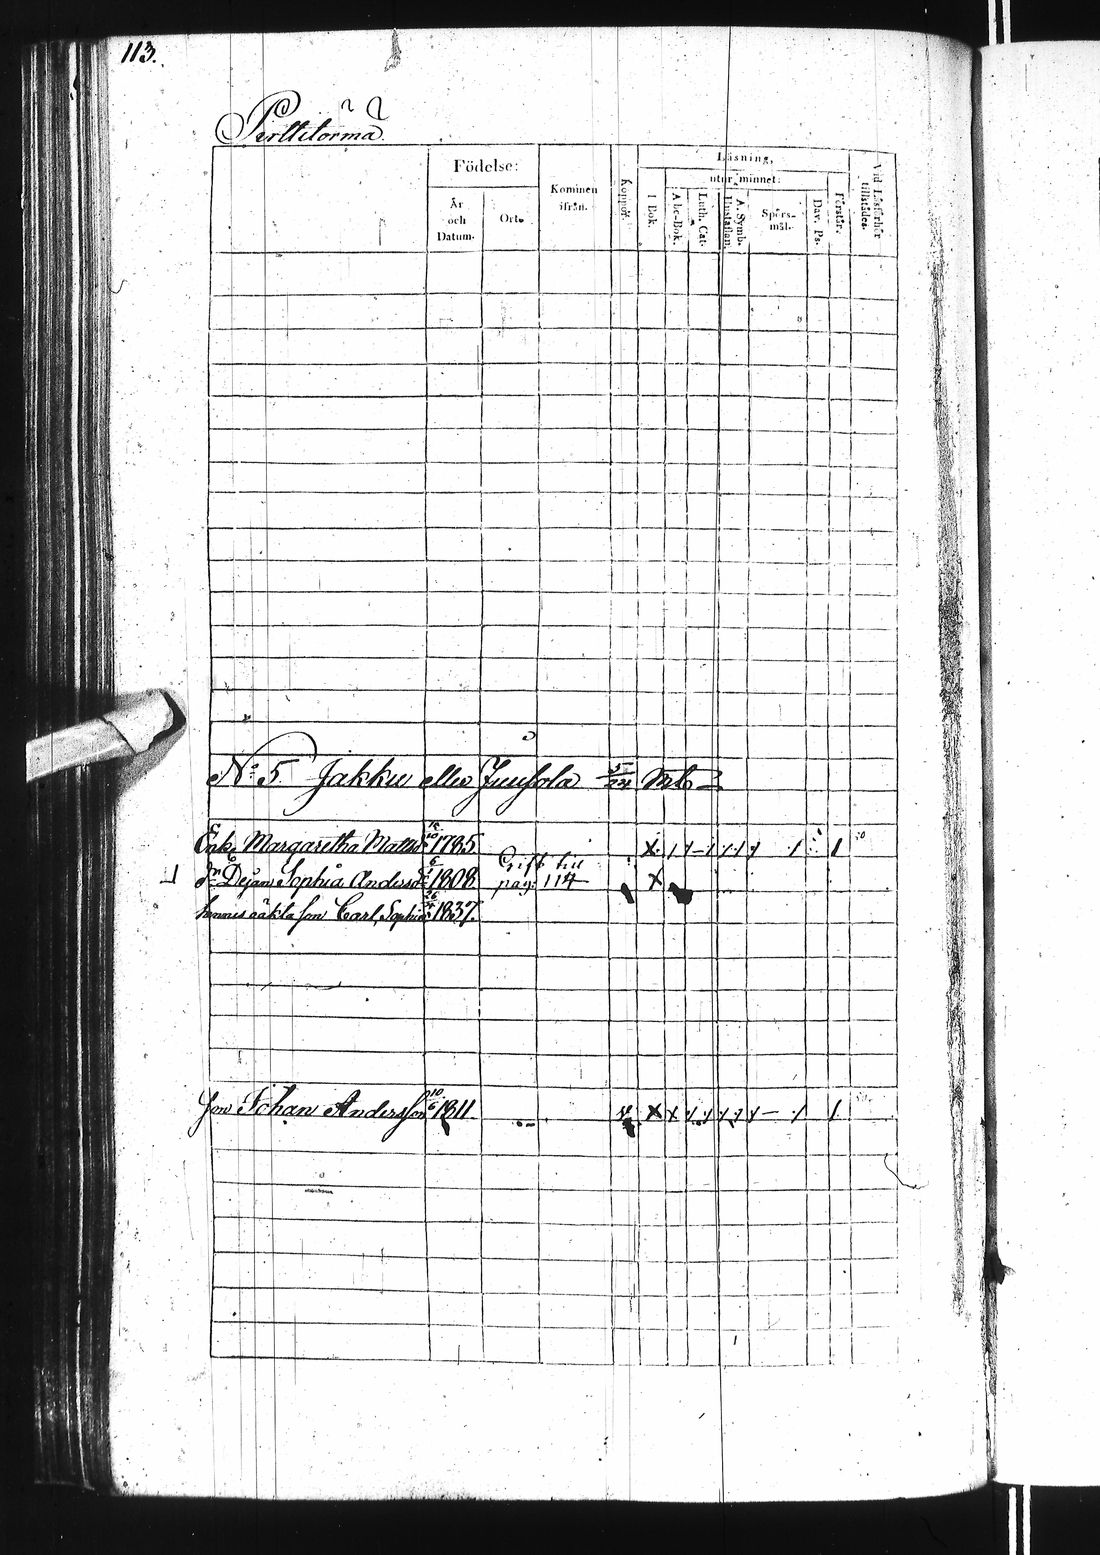 113.
Perttitörmä
Födelse:
År och Datum.
Ort.
Kommen ifrån.
Koppor.
Läsning,
utur minnet:
I Bok.
Abc-Bok.
Luth. Cat.
Hustaflan
A. Symb.
Spörs-mål.
Dav. Ps.
Förstår.
Vid Läsförhör tillstädes.
No 5 Jakku eller Juusola 5/24 mtl
Enk. Margaretha Matts 1785
Dr. Dejan Sophia Anders 1808 Gift till pag: 114
hennes oäkta son Carl, Sophia 1837
Son Johan Andersson 1811